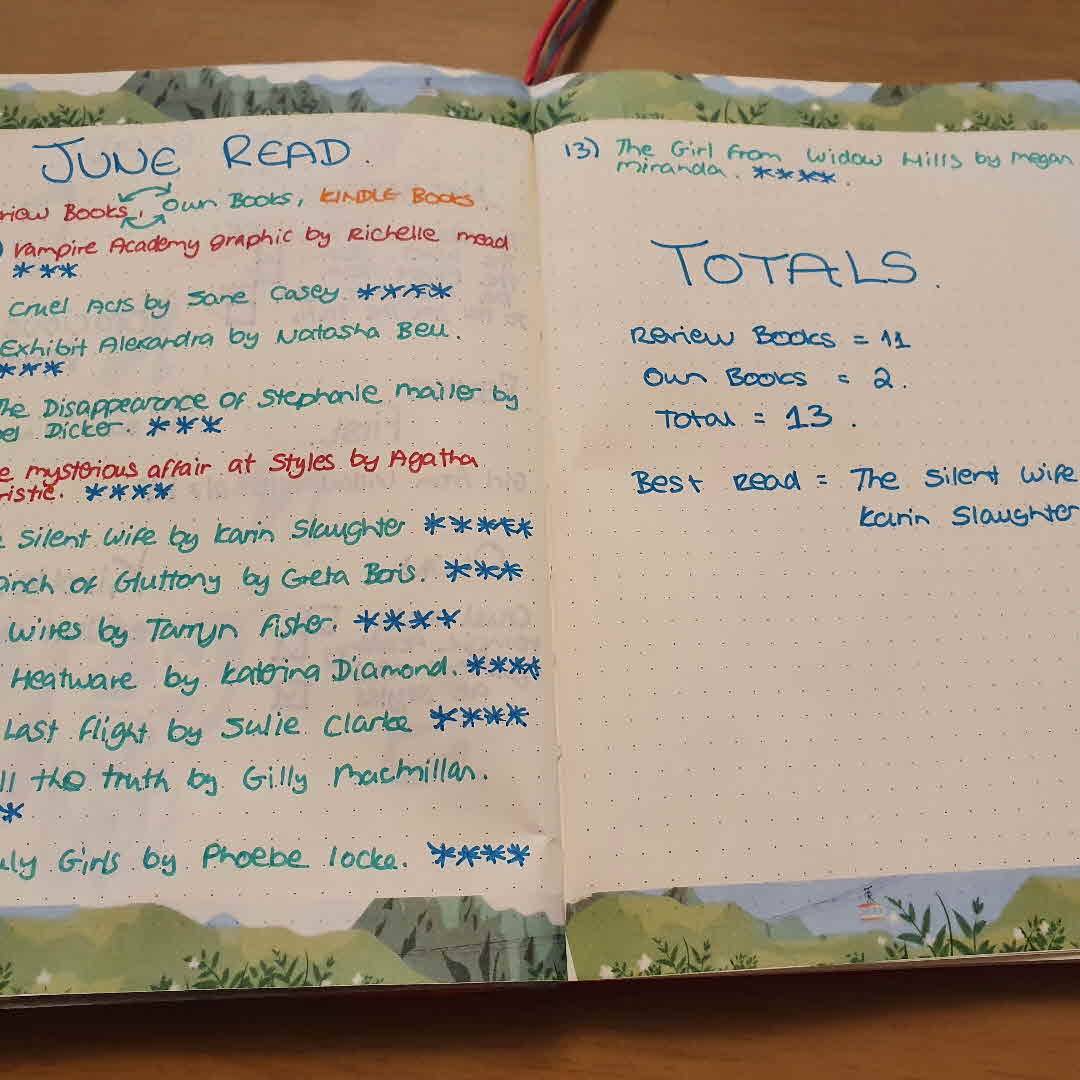 JUNE READ.
riew Books, Own Books, KINDLE Books.
) Vampire Academy graphic by Richelle mead
***
Cruel Acts by Jane Casey. ****
Exhibit Alexandra by Natasha Bell.
***
The Disappearance of Stephanie mailer by
el Dicker. ***
e mysterious affair at Styles by Agatha
ristie. ****
Silent Wife by Karin Slaughter *****
inch of Gluttony by Greta Boris. ***
wives by Tarryn Fisher. ****
Heatware by Katerina Diamond. ****
Last flight by Julie Clarke ****
ll the truth by Gilly macmillan.
*
uly Girls by Phoebe locke. ****
13) The Girl from Widow Hills by megan
miranda. ****.
TOTALS.
Review Books = 11
Own Books = 2.
Total = 13.
Best read = The Silent Wife
Karin Slaughter